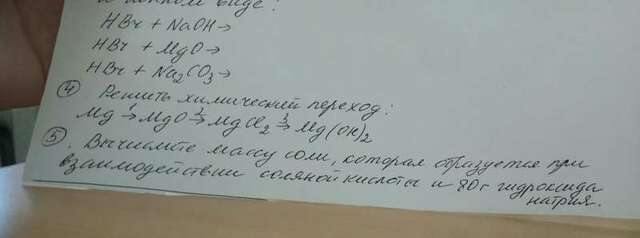 ионном виде:
HBr + NaOH→
HBr + MgO→
HBr + Na₂CO₃→
④ Решить химический переход:
Mg →¹ MgO →² MgCl₂ →³ Mg(OH)₂
⑤. Вычислите массу соли, которая образуется при
взаимодействии соляной кислоты и 80г гидроксида
натрия.